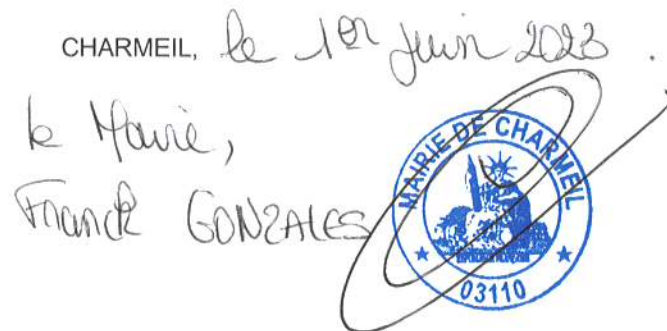 CHARMEIL, le 1er juin 2023.
le Maire,
Franck GONZALES
MAIRIE DE CHARMEIL
03110